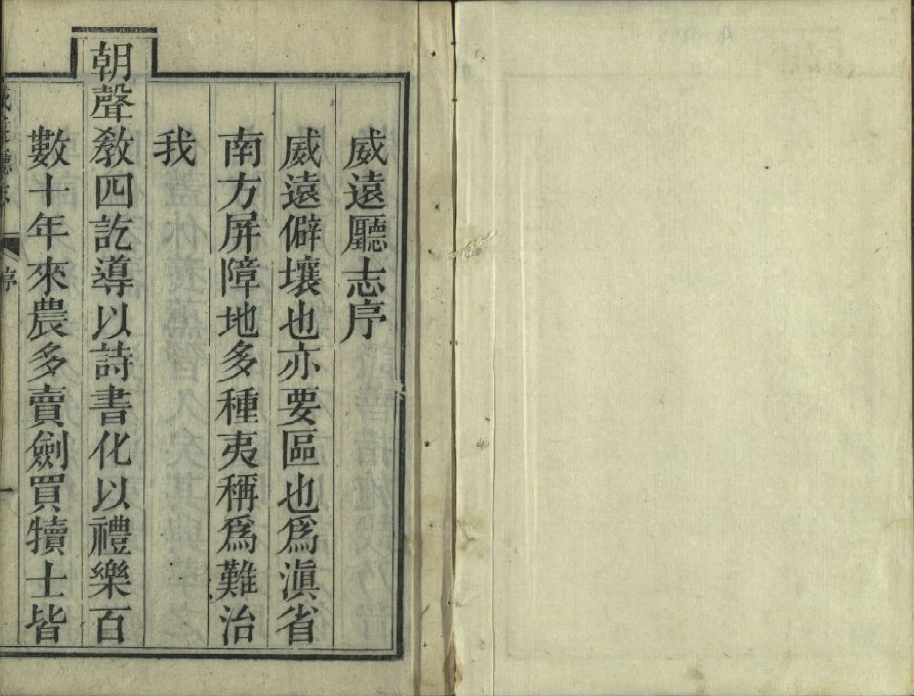 威遠廳志序
威遠僻壤也亦要區也爲滇省
南方屏障地多種夷稱爲難治
我
朝聲教四訖導以詩書化以禮樂百
數十年來農多賣劍買犢士皆
序
一